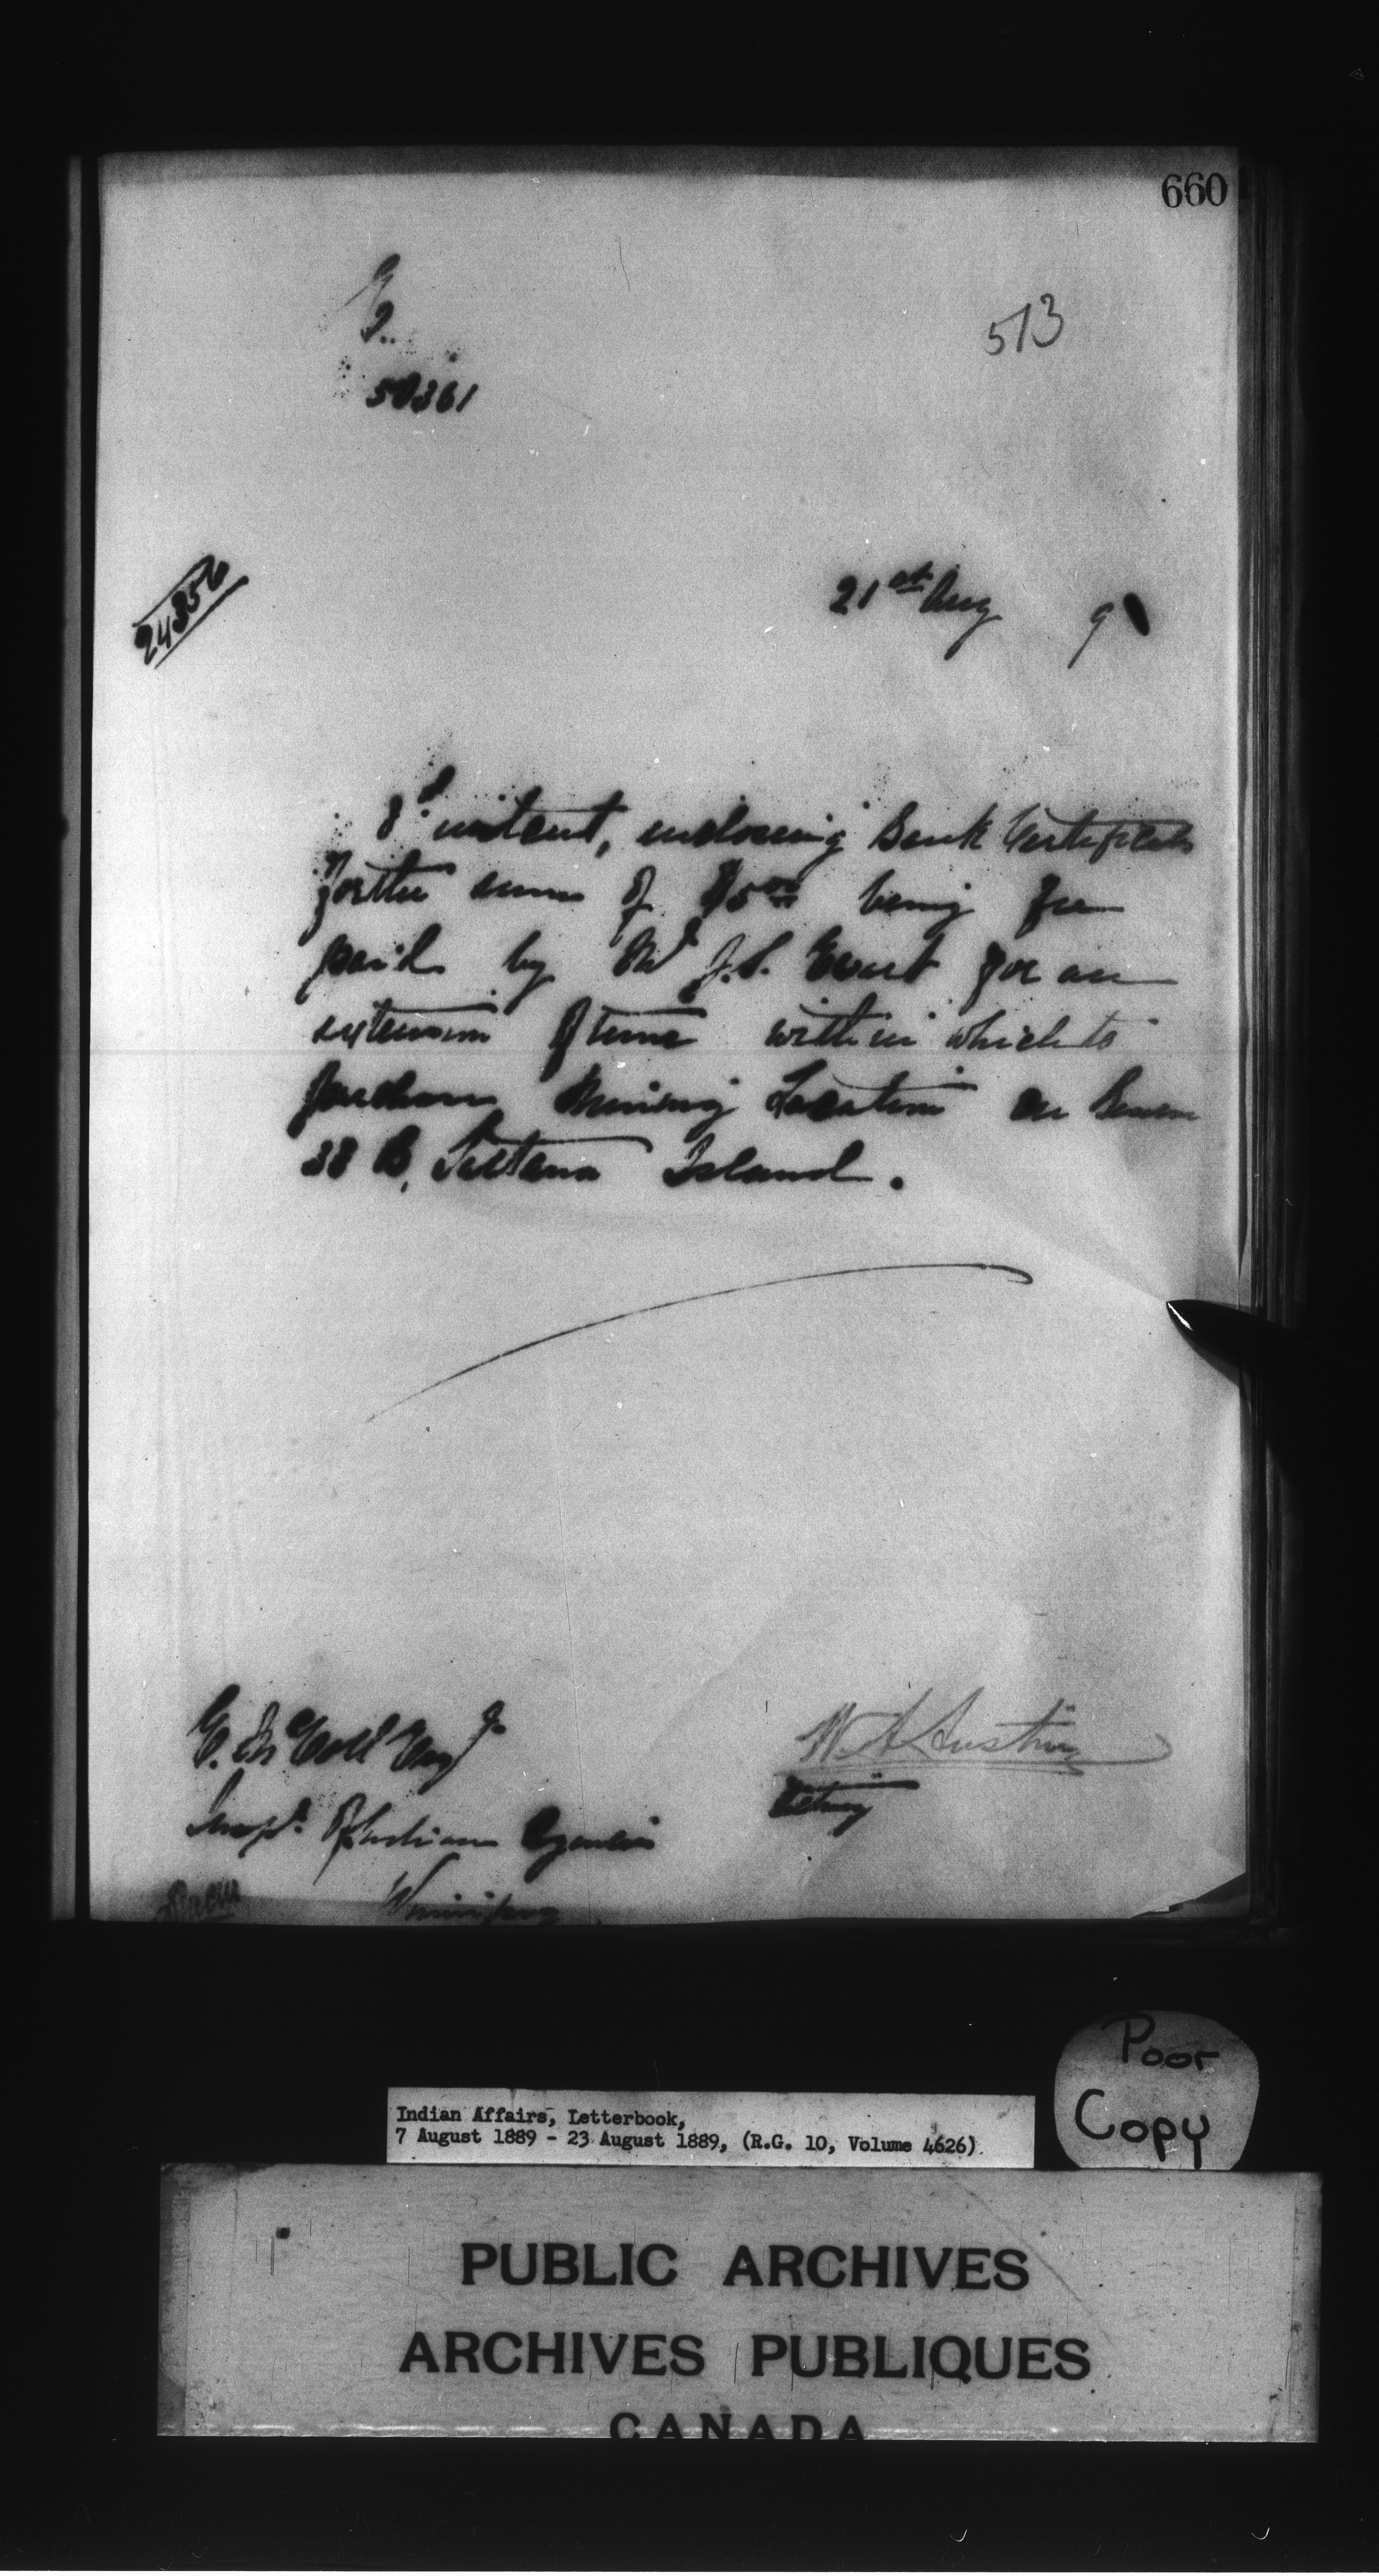 660
513
50361
24356
21st Aug 9
8th instant, enclosing Bank Certificate
for the sum of $5.00 being fee
paid by Mr J.S. Ewart for an
extension of time within which to
purchase Mining Location on Reserve
38 B, Sultana Island.
E. McColl Esqre
Inspr. of Indian Agencies
Winnipeg
W A Austin
Acting
Poor
Copy
Indian Affairs, Letterbook,
7 August 1889 - 23 August 1889, (R.G. 10, Volume 4626)
PUBLIC ARCHIVES
ARCHIVES PUBLIQUES
CANADA